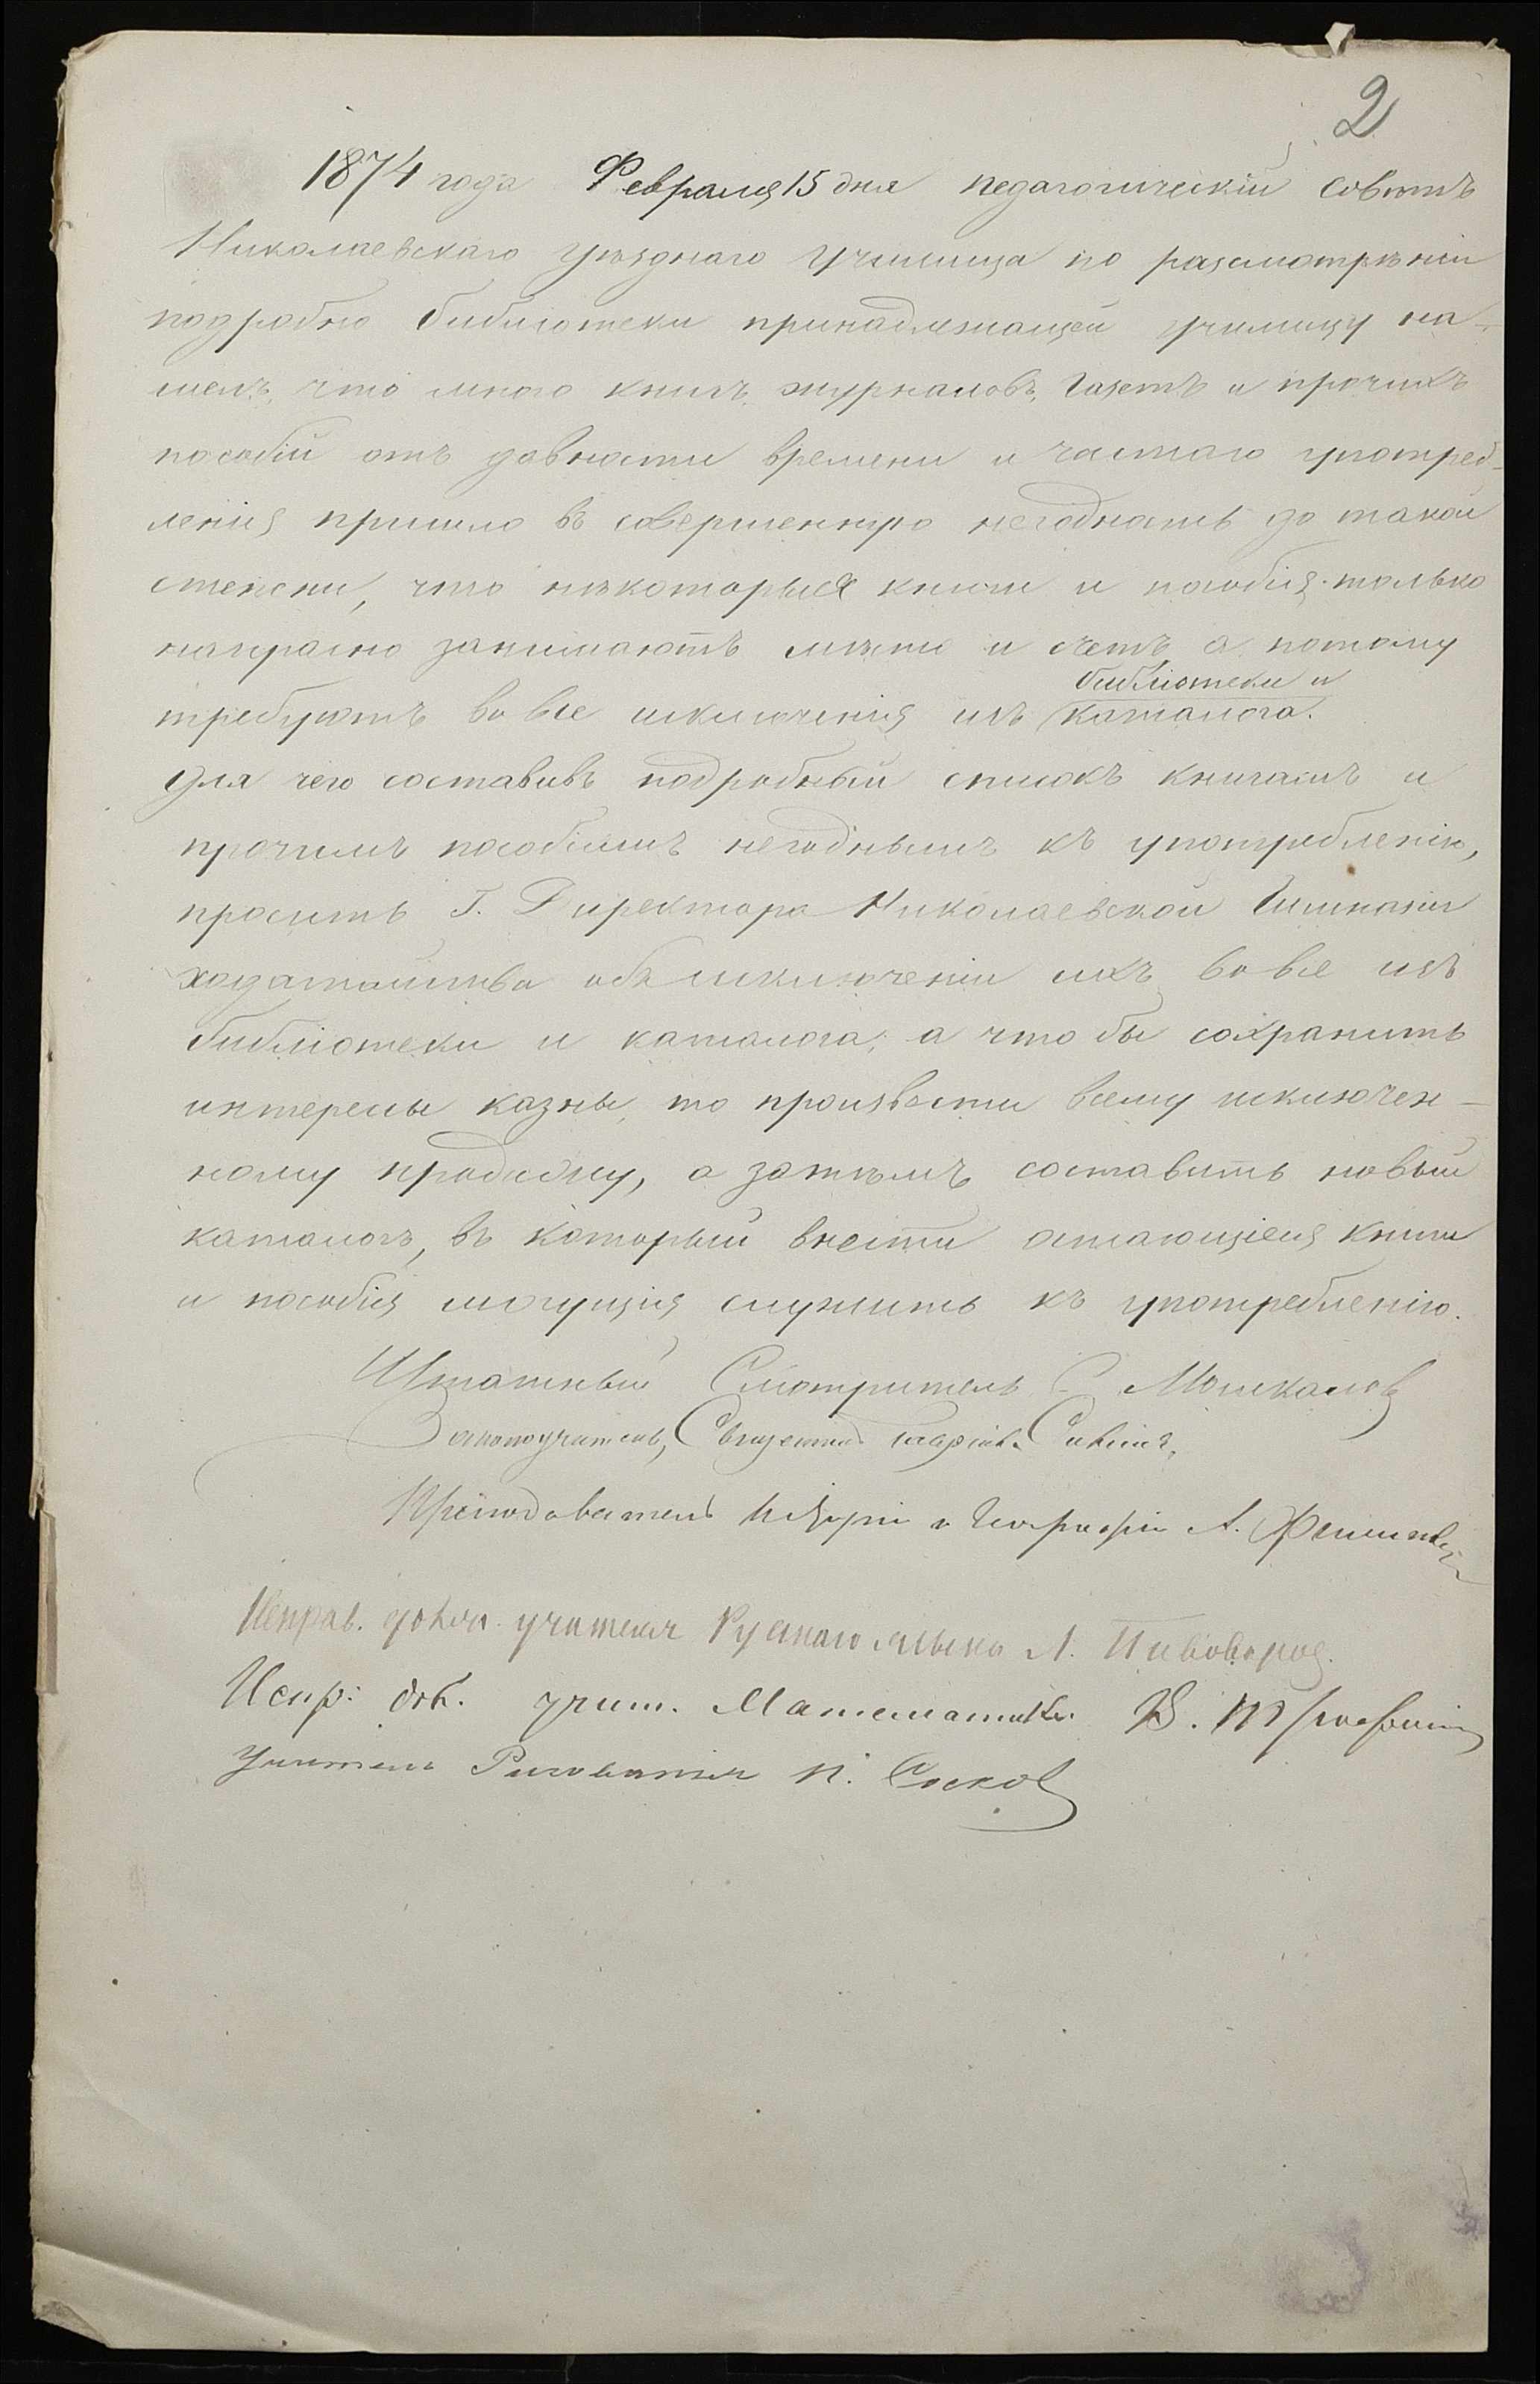 2
1874 года Февраля 15 дня педагогическій совѣтъ
Николаевскаго уѣзднаго училища по разсмотрѣніи
подробно библіотеки принадлежащей училищу на-
шелъ, что много книгъ, журналовъ, газетъ и прочихъ
пособій отъ давности времени и частаго употреб-
ленія пришло въ совершенную негодность до такой
степени, что нѣкоторыя книги и пособія только
напрасно занимаютъ мѣсто и счетъ, а потому
библіотеки и
требуютъ вовсе исключенія изъ каталога.
Для чего составивъ подробный списокъ книгамъ и
прочимъ пособіямъ негоднымъ къ употребленію,
просить Г. Директора Николаевской Гимназіи
ходатайства объ исключеніи ихъ вовсе изъ
библіотеки и каталога; а что бы сохранить
интересы казны, то произвести всему исключен-
ному продажу, а затѣмъ составить новый
каталогъ, въ который внести остающіеся книги
и пособія могущія служить къ употребленію.
Штатный Смотритель С. Мошкалов
Законоучитель, Священникъ
Преподаватель Исторіи и Географіи А.
Исправ. должн. учителя Русскаго языка А. Пивоваров.
Испр: дол. учит. Математики В.
Учитель Рисованія П. Сосков